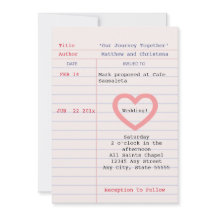 Title 'Our Journey Together'
Author Matthew and Christena
DATE ISSUED TO
FEB 14 Mark proposed at Cafe
Sausaleta
JUN 22 201x Wedding!
Saturday
2 o'clock in the
afternoon
All Saints Chapel
12345 Any Street
Any City, State 55555
Reception to Follow